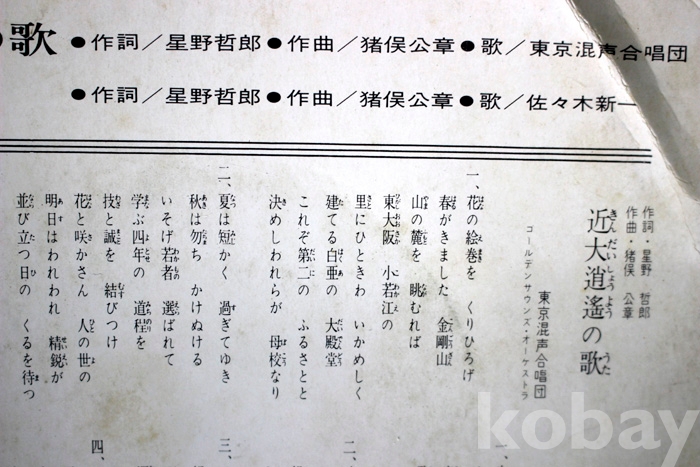 歌 ●作詞／星野哲郎●作曲／猪俣公章●歌／東京混声合唱団
●作詞／星野哲郎●作曲／猪俣公章●歌／佐々木新一
作詞・星野 哲郎
作曲・猪俣 公章
近大逍遙の歌
きんだいしょうよう うた
東京混声合唱団
ゴールデンサウンズ・オーケストラ
一、花の絵巻を くりひろげ
春がきました 金剛山
山の麓を 眺むれば
東大阪 小若江の
里にひときわ いかめしく
建てる白亜の 大殿堂
これぞ第二の ふるさとと
決めしわれらが 母校なり
二、夏は短かく 過ぎてゆき
秋は忽ち かけぬける
いそげ若者 選ばれて
学ぶ四年の 道程を
技と誠を 結びつけ
花と咲かさん 人の世の
明日はわれわれ 精鋭が
並び立つ日の くるを待つ
一、
二、
三、
四、
kobay